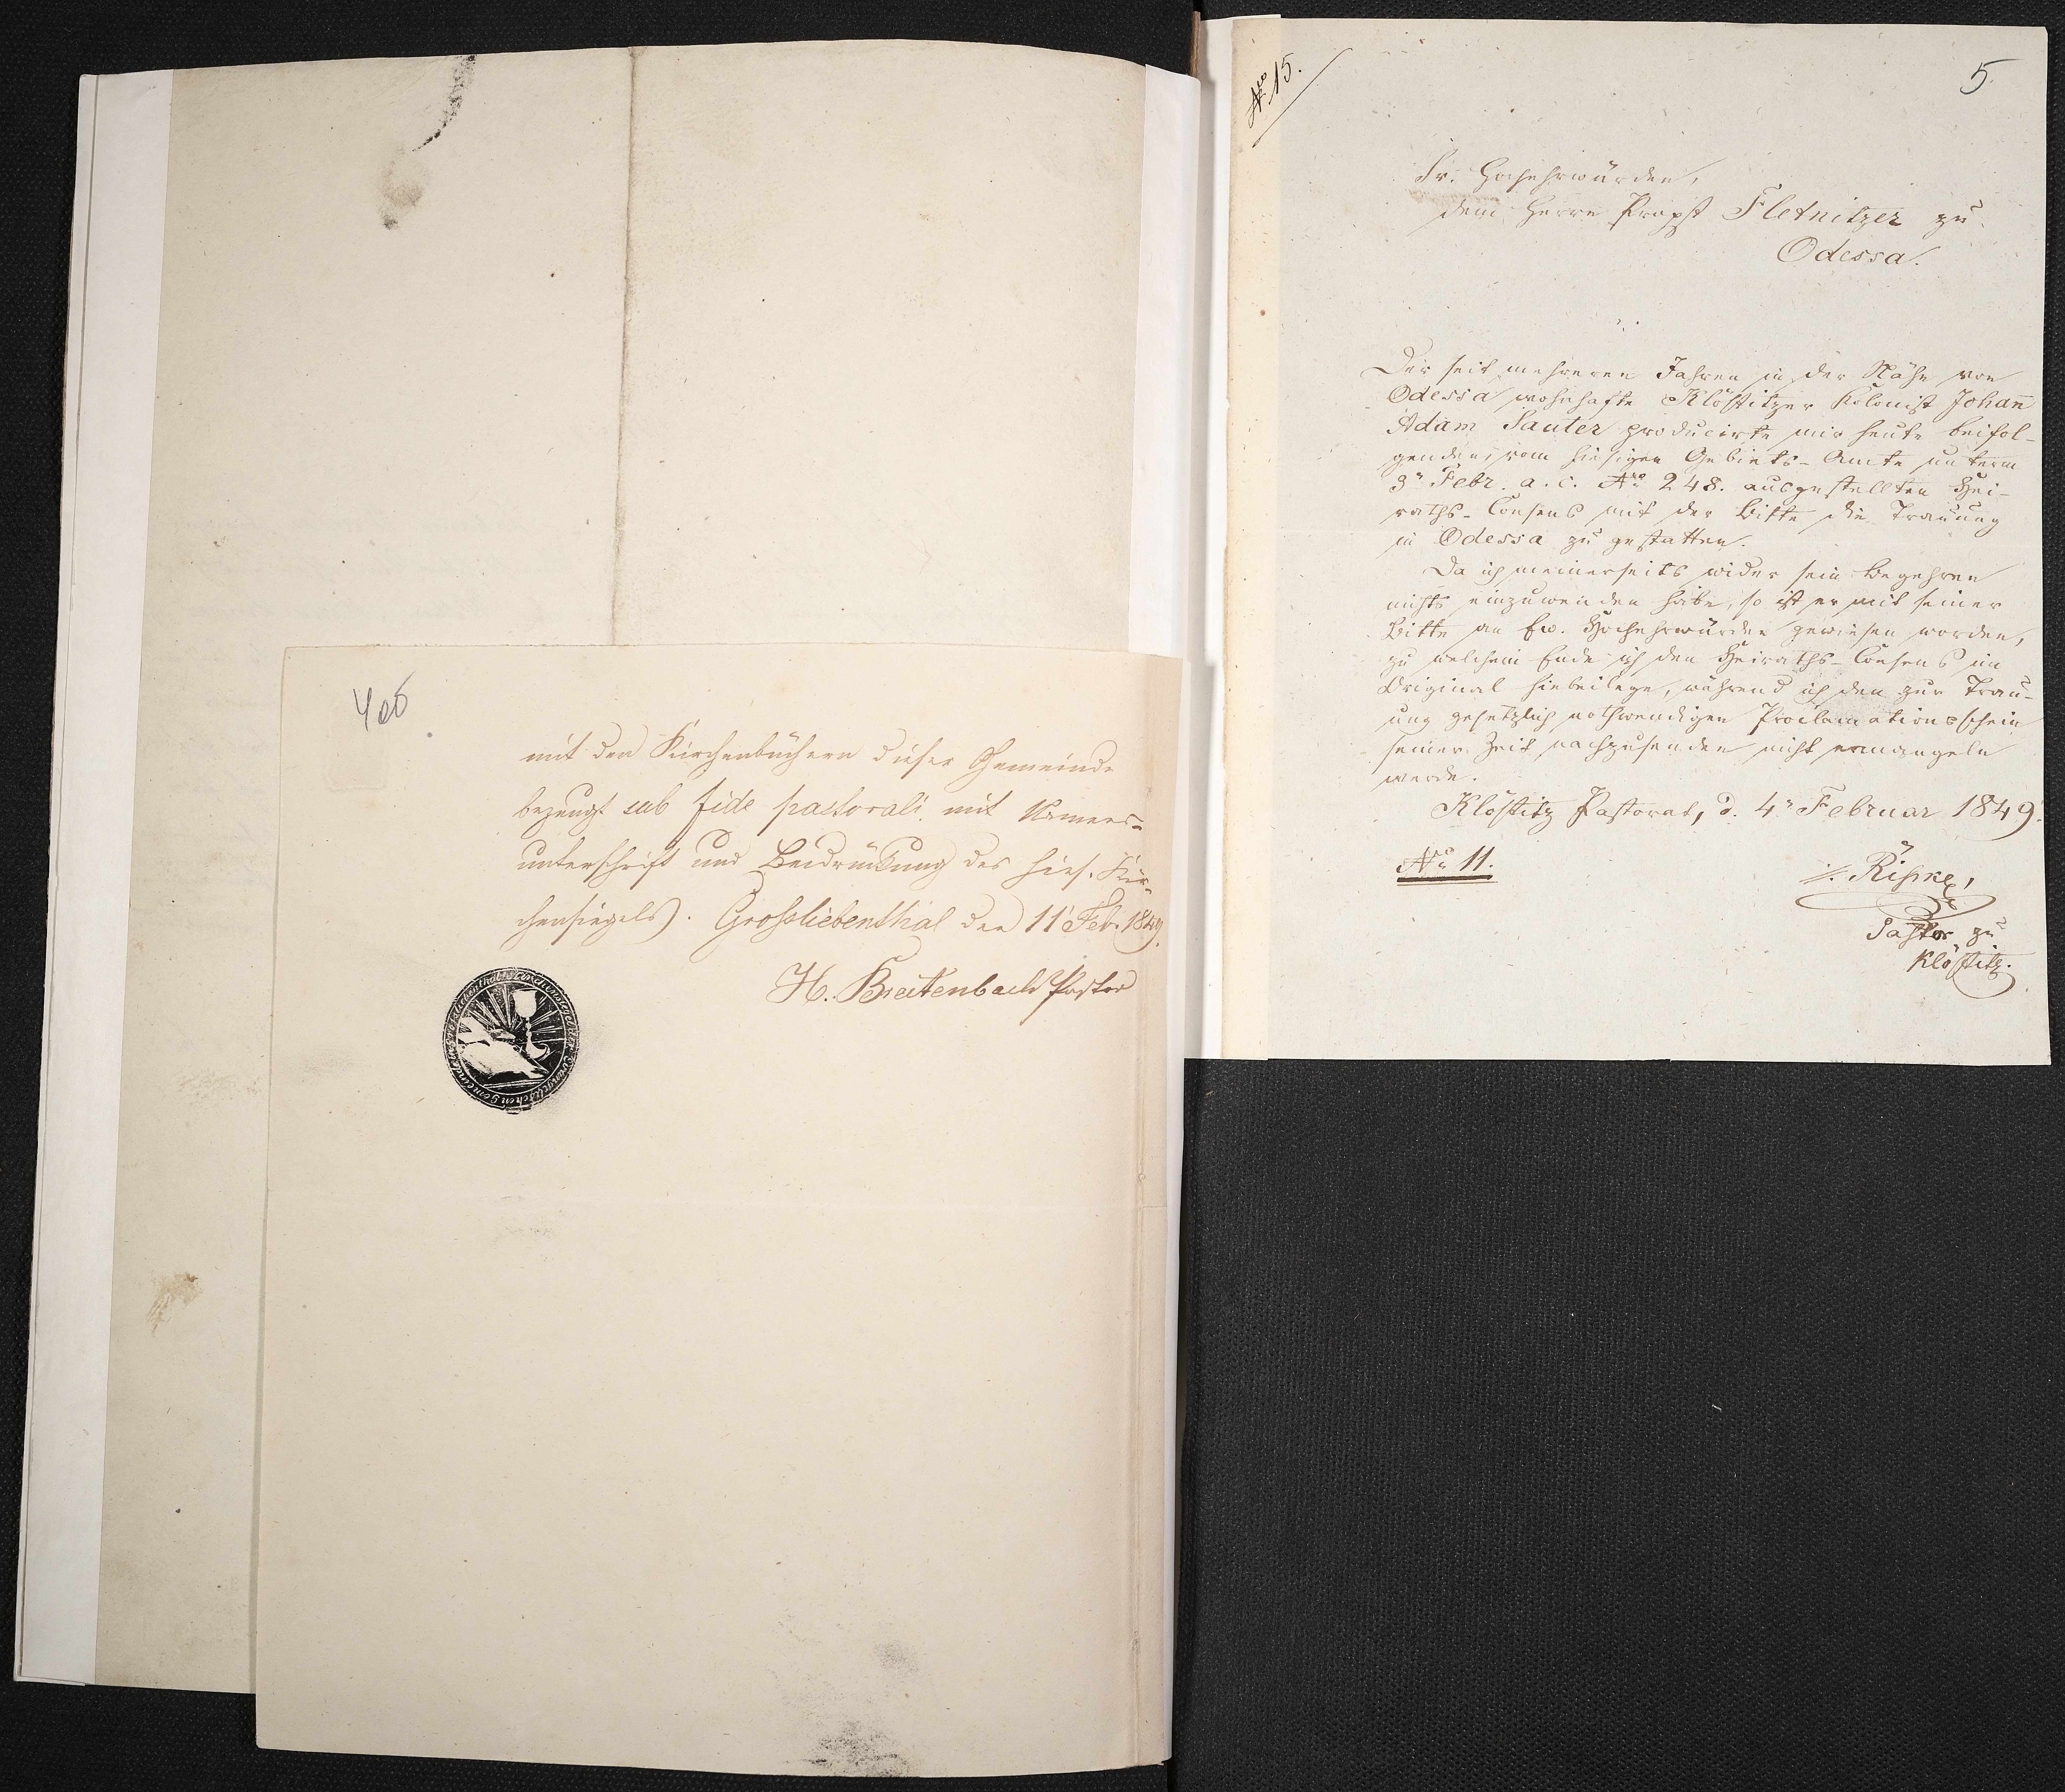 4об
mit den Kirchenbüchern dieser Gemeinde
bezeugt sub fide pastorali mit Namens-
unterschrift und Beidrückung des hies. Kir-
chensiegels. Grossliebenthal den 11 Feb. 1849.
H. Breitenbach Pastor
No 15.
5
Sr. Hochehrwürden,
dem Herrn Propst Fletnitzer zu
Odessa.
Der seit mehreren Jahren in der Nähe von
Odessa wohnhafte Klöstitzer Kolonist Johan̄
Adam Sauter producirte mir heute beifol-
genden, vom hiesigen Gebiets-Amte unterm
3" Febr. a. c. No 248. ausgestellten Hei-
raths-Consens mit der Bitte die Trauung
in Odessa zu gestatten.
Da ich meinerseits wider sein Begehren
nichts einzuwenden habe, so ist er mit seiner
Bitte an Ew. Hochehrwürden gewiesen worden,
zu welchem Ende ich den Heiraths-Consens im
Original hiebeilege, während ich den zur Trau-
ung gesetzlich nothwendigen Proclamationsschein
seiner Zeit nachzusenden nicht ermangeln
werde.
Klöstitz Pastorat, d. 4" Februar 1849.
No 11.
Pastor zu
Klöstitz.